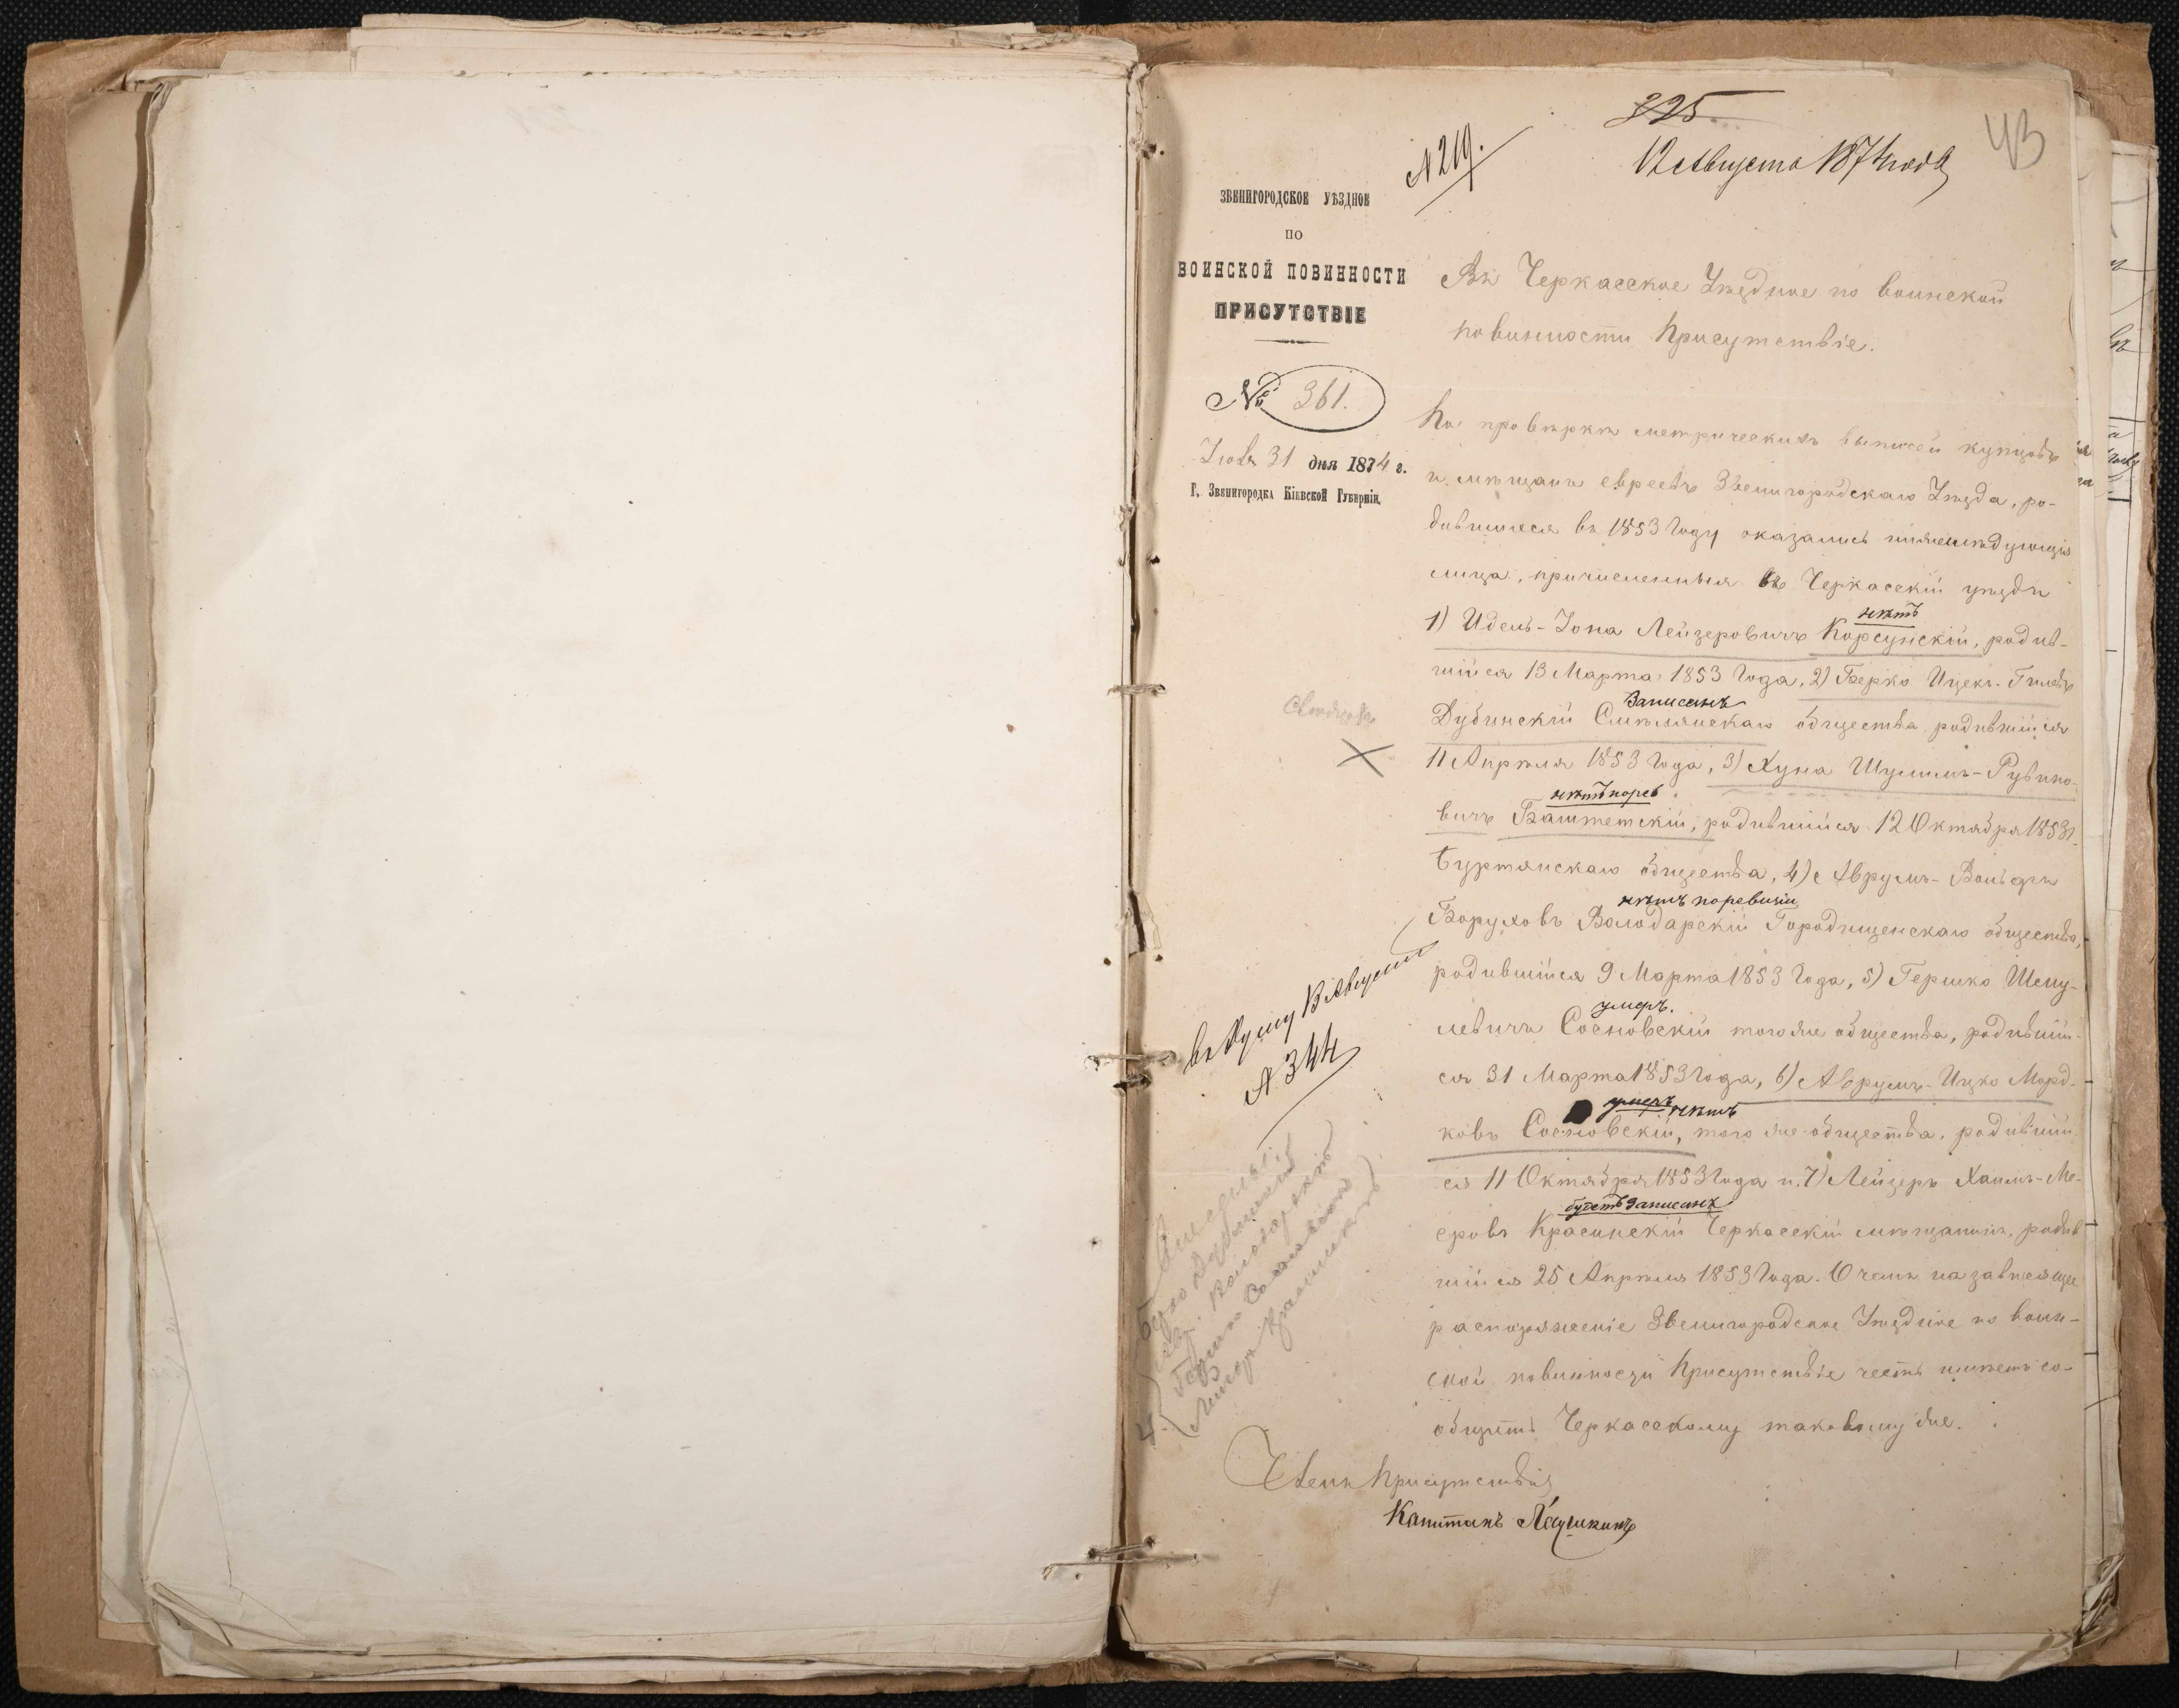 325
43
N 219.
12 Августа 1874 года
ЗВЕНИГОРОДСКОЕ УѢЗДНОЕ
ПО
ВОИНСКОЙ ПОВИННОСТИ
ПРИСУТСТВІЕ
№ 361.
Іюля 31 дня 1874 г.
Г. Звенигородка Кіевской Губерніи.
Въ Черкасское Уѣздное по воинской
повинности Присутствіе.
По провѣркѣ метрическихъ выписей купцовъ
и мѣщанъ евреевъ Звенигородскаго Уѣзда, ро-
дившихся въ 1853 Году оказались нижеслѣдующія
лица, причисленныя въ Черкасскій уѣздъ
нѣтъ
1) Идель-Іона Лейзеровичъ Корсунскій, родив-
шійся 13 Марта 1853 Года, 2) Берко Ицекъ-Гилевъ
Записанъ
Дубинскій Смѣлянскаго общества родившійся
11 Апрѣля 1853 Года, 3) Хуна Шулимъ-Рувино-
нѣтъ порев
вичъ Баштетскій, родившійся 12 Октября 1853 г.
Буртянскаго общества, 4) Аврумъ-Вольфъ
нѣтъ поревизіи
Боруховъ Володарскій Городищенскаго общества,
родившійся 9 Марта 1853 Года, 5) Гершко Шму-
умеръ.
левичъ Сосновскій того же общества, родивший-
ся 31 Марта 1853 Года, 6) Аврумъ-Ицко Морд-
умеръ нѣтъ
ковъ Сосновскій, того же общества, родивший
ся 11 Октября 1853 Года и 7) Лейзеръ Хаимъ-Ме-
будетъ записанъ
еровъ Красинскій Черкасскій мѣщанинъ, родив
шійся 25 Апрѣля 1853 Года. О чемъ на зависящее
распоряженіе Звенигородское Уѣздное по воин-
ской повинности Присутствіе честь имѣетъ со-
общить Черкасскому таковому же.
въ Думу 13 Августа
N 344
Членъ Присутствія
Капитанъ